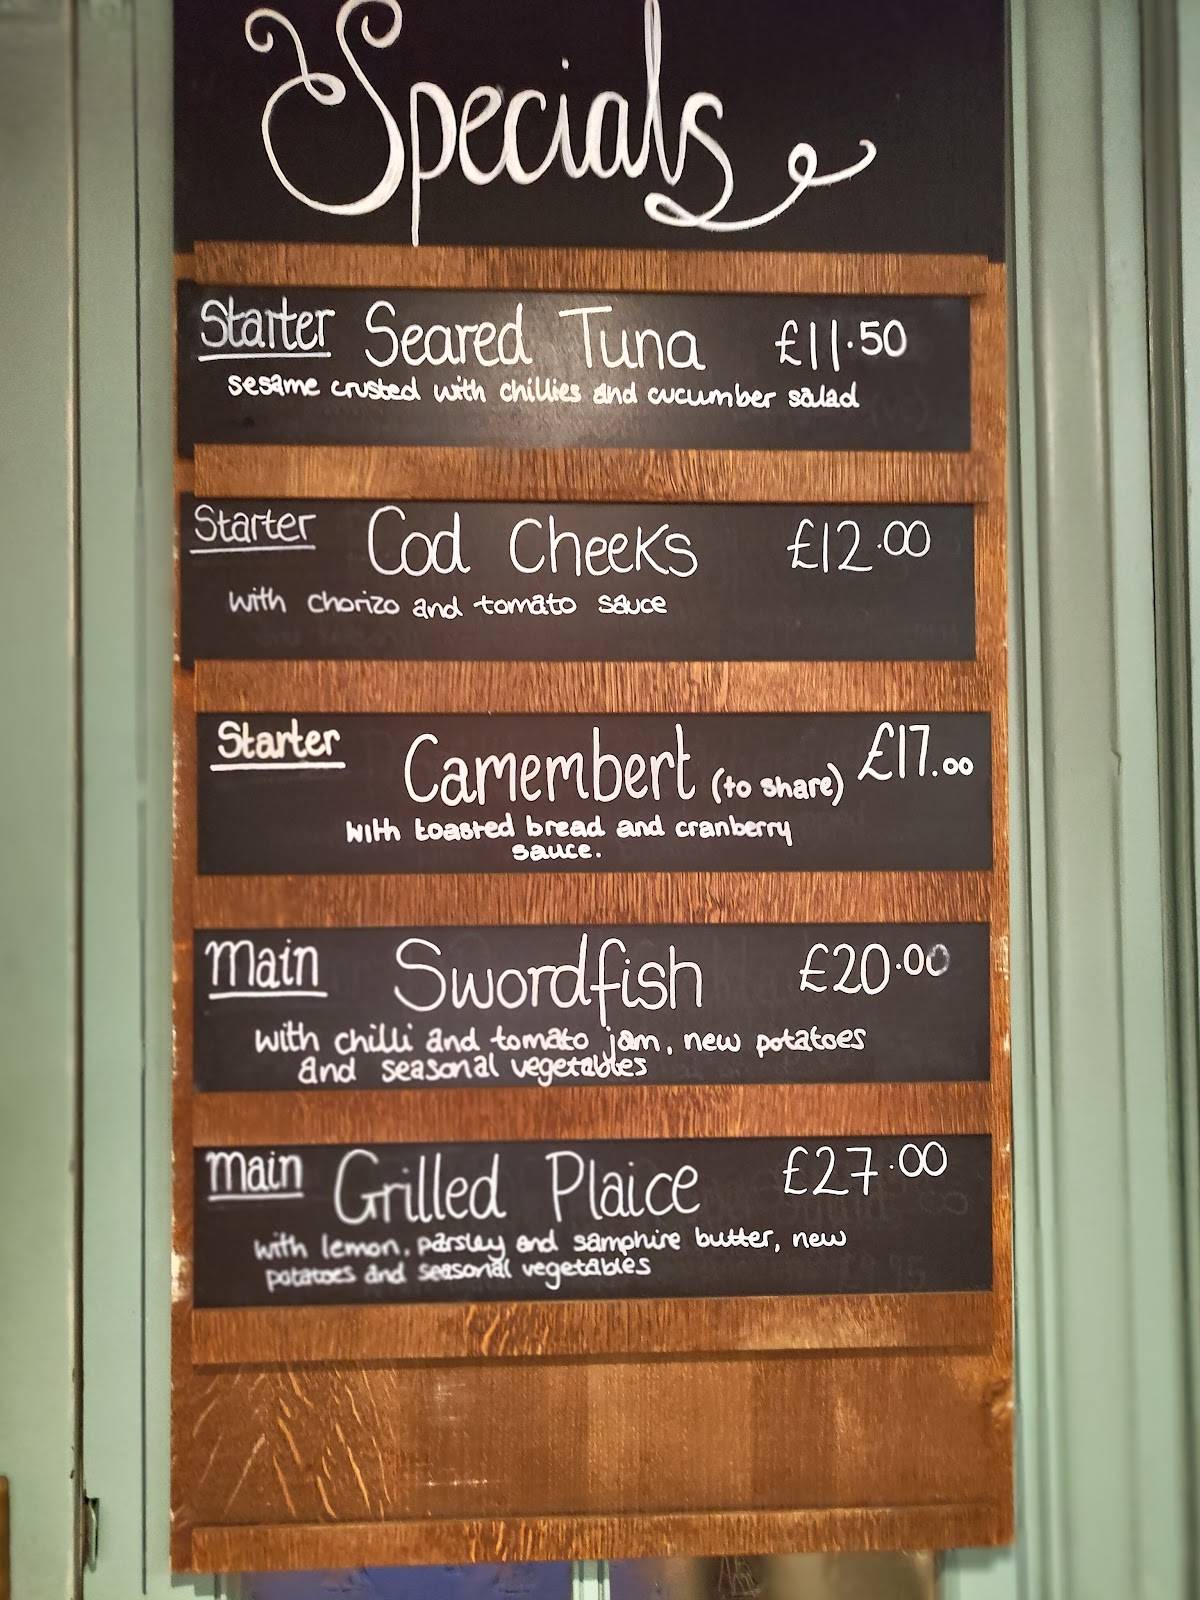 Specials
Starter Seared Tuna £11.50
sesame crusted with chillies and cucumber salad
Starter Cod Cheeks £12.00
with chorizo and tomato sauce
Starter Camembert (to share) £17.00
with toasted bread and cranberry
sauce.
Main Swordfish £20.00
with chilli and tomato jam, new potatoes
and seasonal vegetables
Main Grilled Plaice £27.00
with lemon, parsley and samphire butter, new
potatoes and seasonal vegetables